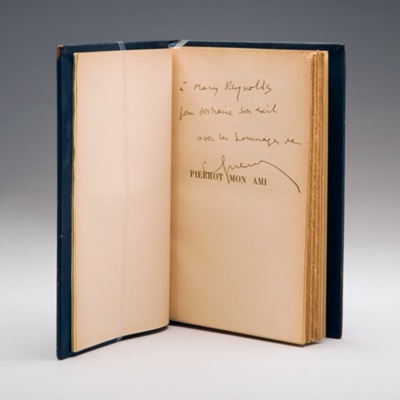 à Mary Reynolds
pour distraire son exil
avec les hommages de
Queneau
PIERROT MON AMI